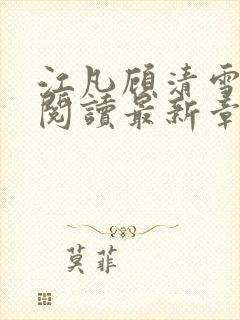 江凡顾清雪
閱讀最新章
莫菲